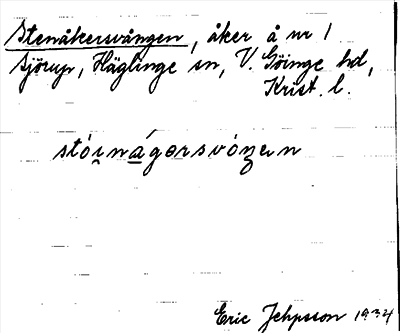 Stenåkersvången, åker å nr 1
Sjörup, Häglinge sn, V. Göinge hd,
Krist. l.
stóinágərsvóŋen
Eric Jehpsson 1934